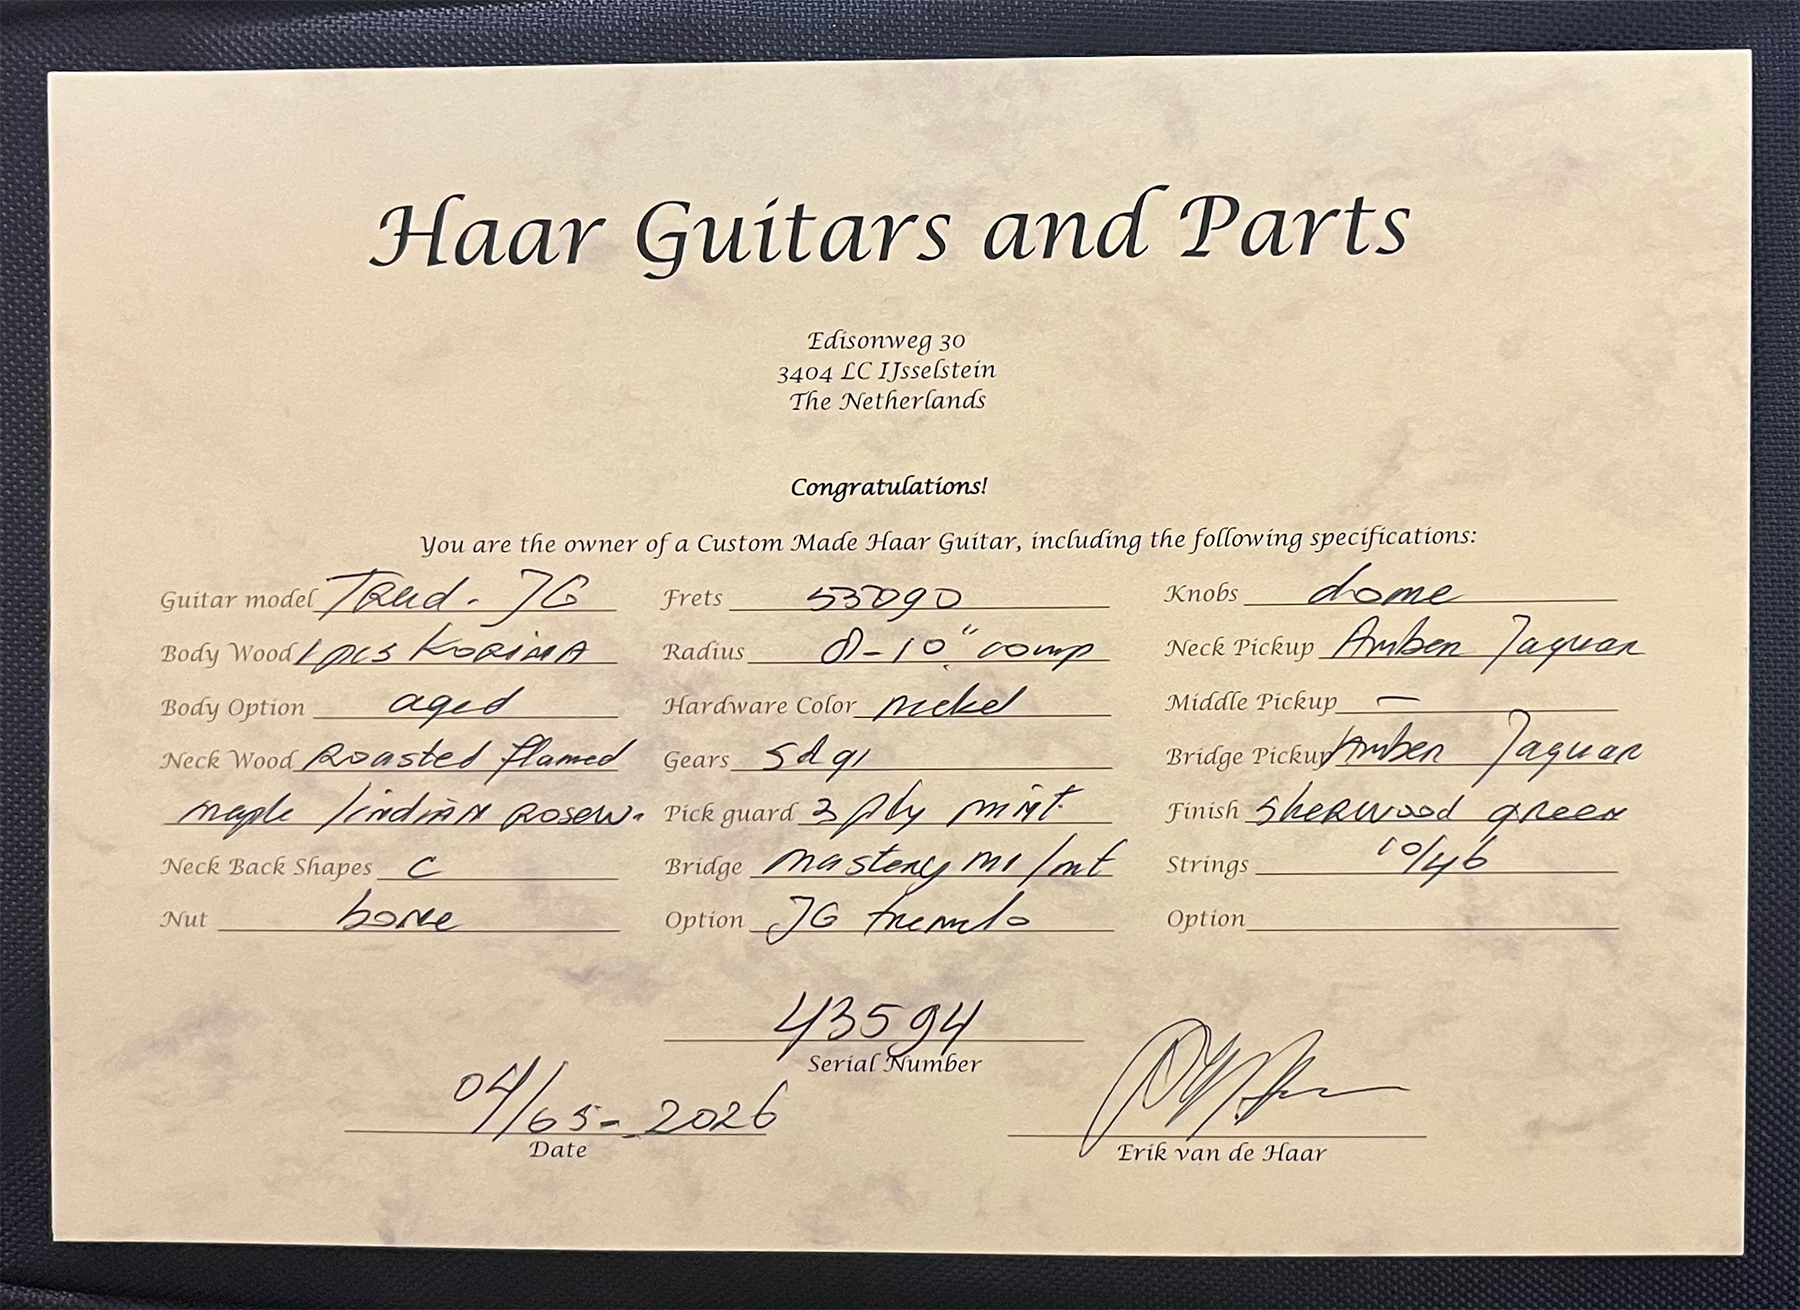 Haar Guitars and Parts
Edisonweg 30
3404 LC IJsselstein
The Netherlands
Congratulations!
You are the owner of a Custom Made Haar Guitar, including the following specifications:
Guitar model Trad. JG
Body Wood 1pcs Korina
Body Option aged
Neck Wood Roasted flamed
maple / indian Rosew.
Neck Back Shapes C
Nut bone
Frets 55090
Radius 8-10" comp
Hardware Color nickel
Gears sd91
Pick guard 3 ply mint
Bridge mastery m1/mt
Option JG tremolo
Knobs dome
Neck Pickup Amber Jaguar
Middle Pickup —
Bridge Pickup Amber Jaguar
Finish Sherwood green
Strings 10/46
Option
43594
Serial Number
04/05-2026
Date
Erik van de Haar